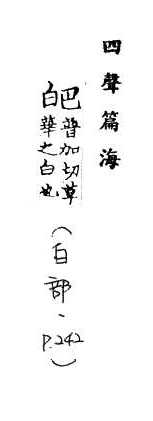 四聲篇海
皅普加切草
華之白也
(白部、P.242)